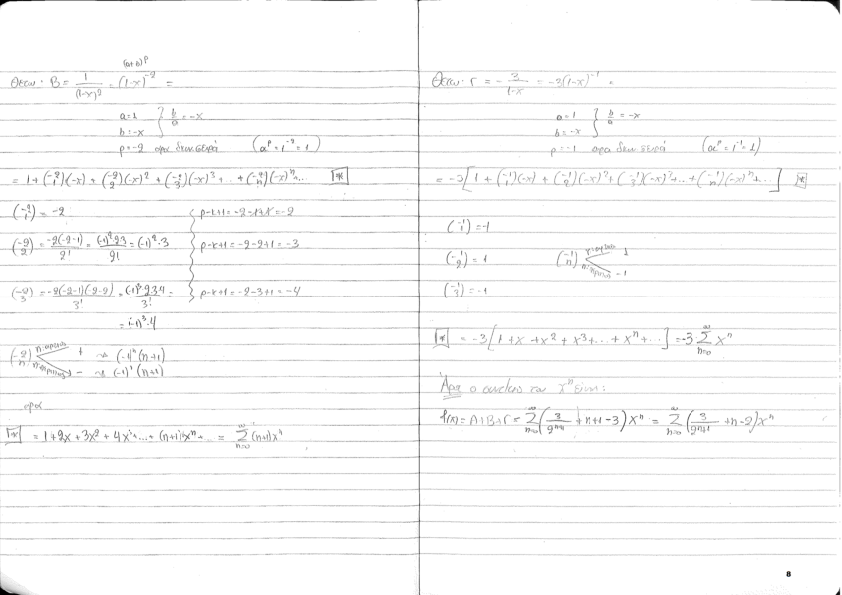 (a+b)^p
Θέτω: B = 1/(1-x)^2 = (1-x)^-2 =
a=1
b=-x } b/a = -x
p=-2 άρα δυν.σειρά (a^p = 1^-2 = 1)
= 1 + (-2 1)(-x) + (-2 2)(-x)^2 + (-2 3)(-x)^3 + .. + (-2 n)(-x)^n... [*]
(-2 1) = -2
p-κ+1 = -2-1+1 = -2
(-2 2) = -2(-2-1)/2! = (-1)^2·2·3/2! = (-1)^2·3
p-κ+1 = -2-2+1 = -3
(-2 3) = -2(-2-1)(-2-2)/3! = (-1)^3 2·3·4/3! =
p-κ+1 = -2-3+1 = -4
= (-1)^3·4
(-2 n) + ⇝ (-1)^n (n+1)
- ⇝ (-1)^n (n+1)
άρα
[*] = 1+2x+3x^2+4x^3+...+(n+1)x^n+... = ∑_{n=0}^∞ (n+1)x^n
Θέτω: Γ = -3/(1-x) = -3(1-x)^-1 =
a=1
b=-x } b/a = -x
p=-1 άρα δυν σειρά (a^p = 1^-1 = 1)
= -3[1 + (-1 1)(-x) + (-1 2)(-x)^2 + (-1 3)(-x)^3 + .. + (-1 n)(-x)^n + ...] [*]
(-1 1) = -1
(-1 2) = 1
(-1 n) 1
-1
(-1 3) = -1
[*] = -3[1 + x + x^2 + x^3 + .. + x^n + ...] = -3 ∑_{n=0}^∞ x^n
Άρα ο συντελ. του x^n είναι:
f(x) = A+B+Γ = ∑_{n=0}^∞ (3/2^{n+1} + n+1-3) x^n = ∑_{n=0}^∞ (3/2^{n+1} + n-2) x^n
8